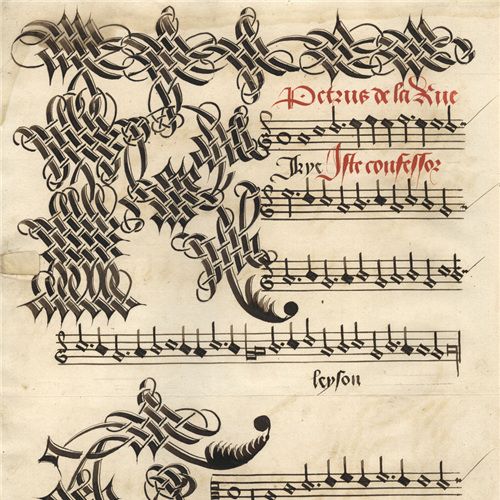 Petrus de la Rue
Kyrie Iste confessor
leyson